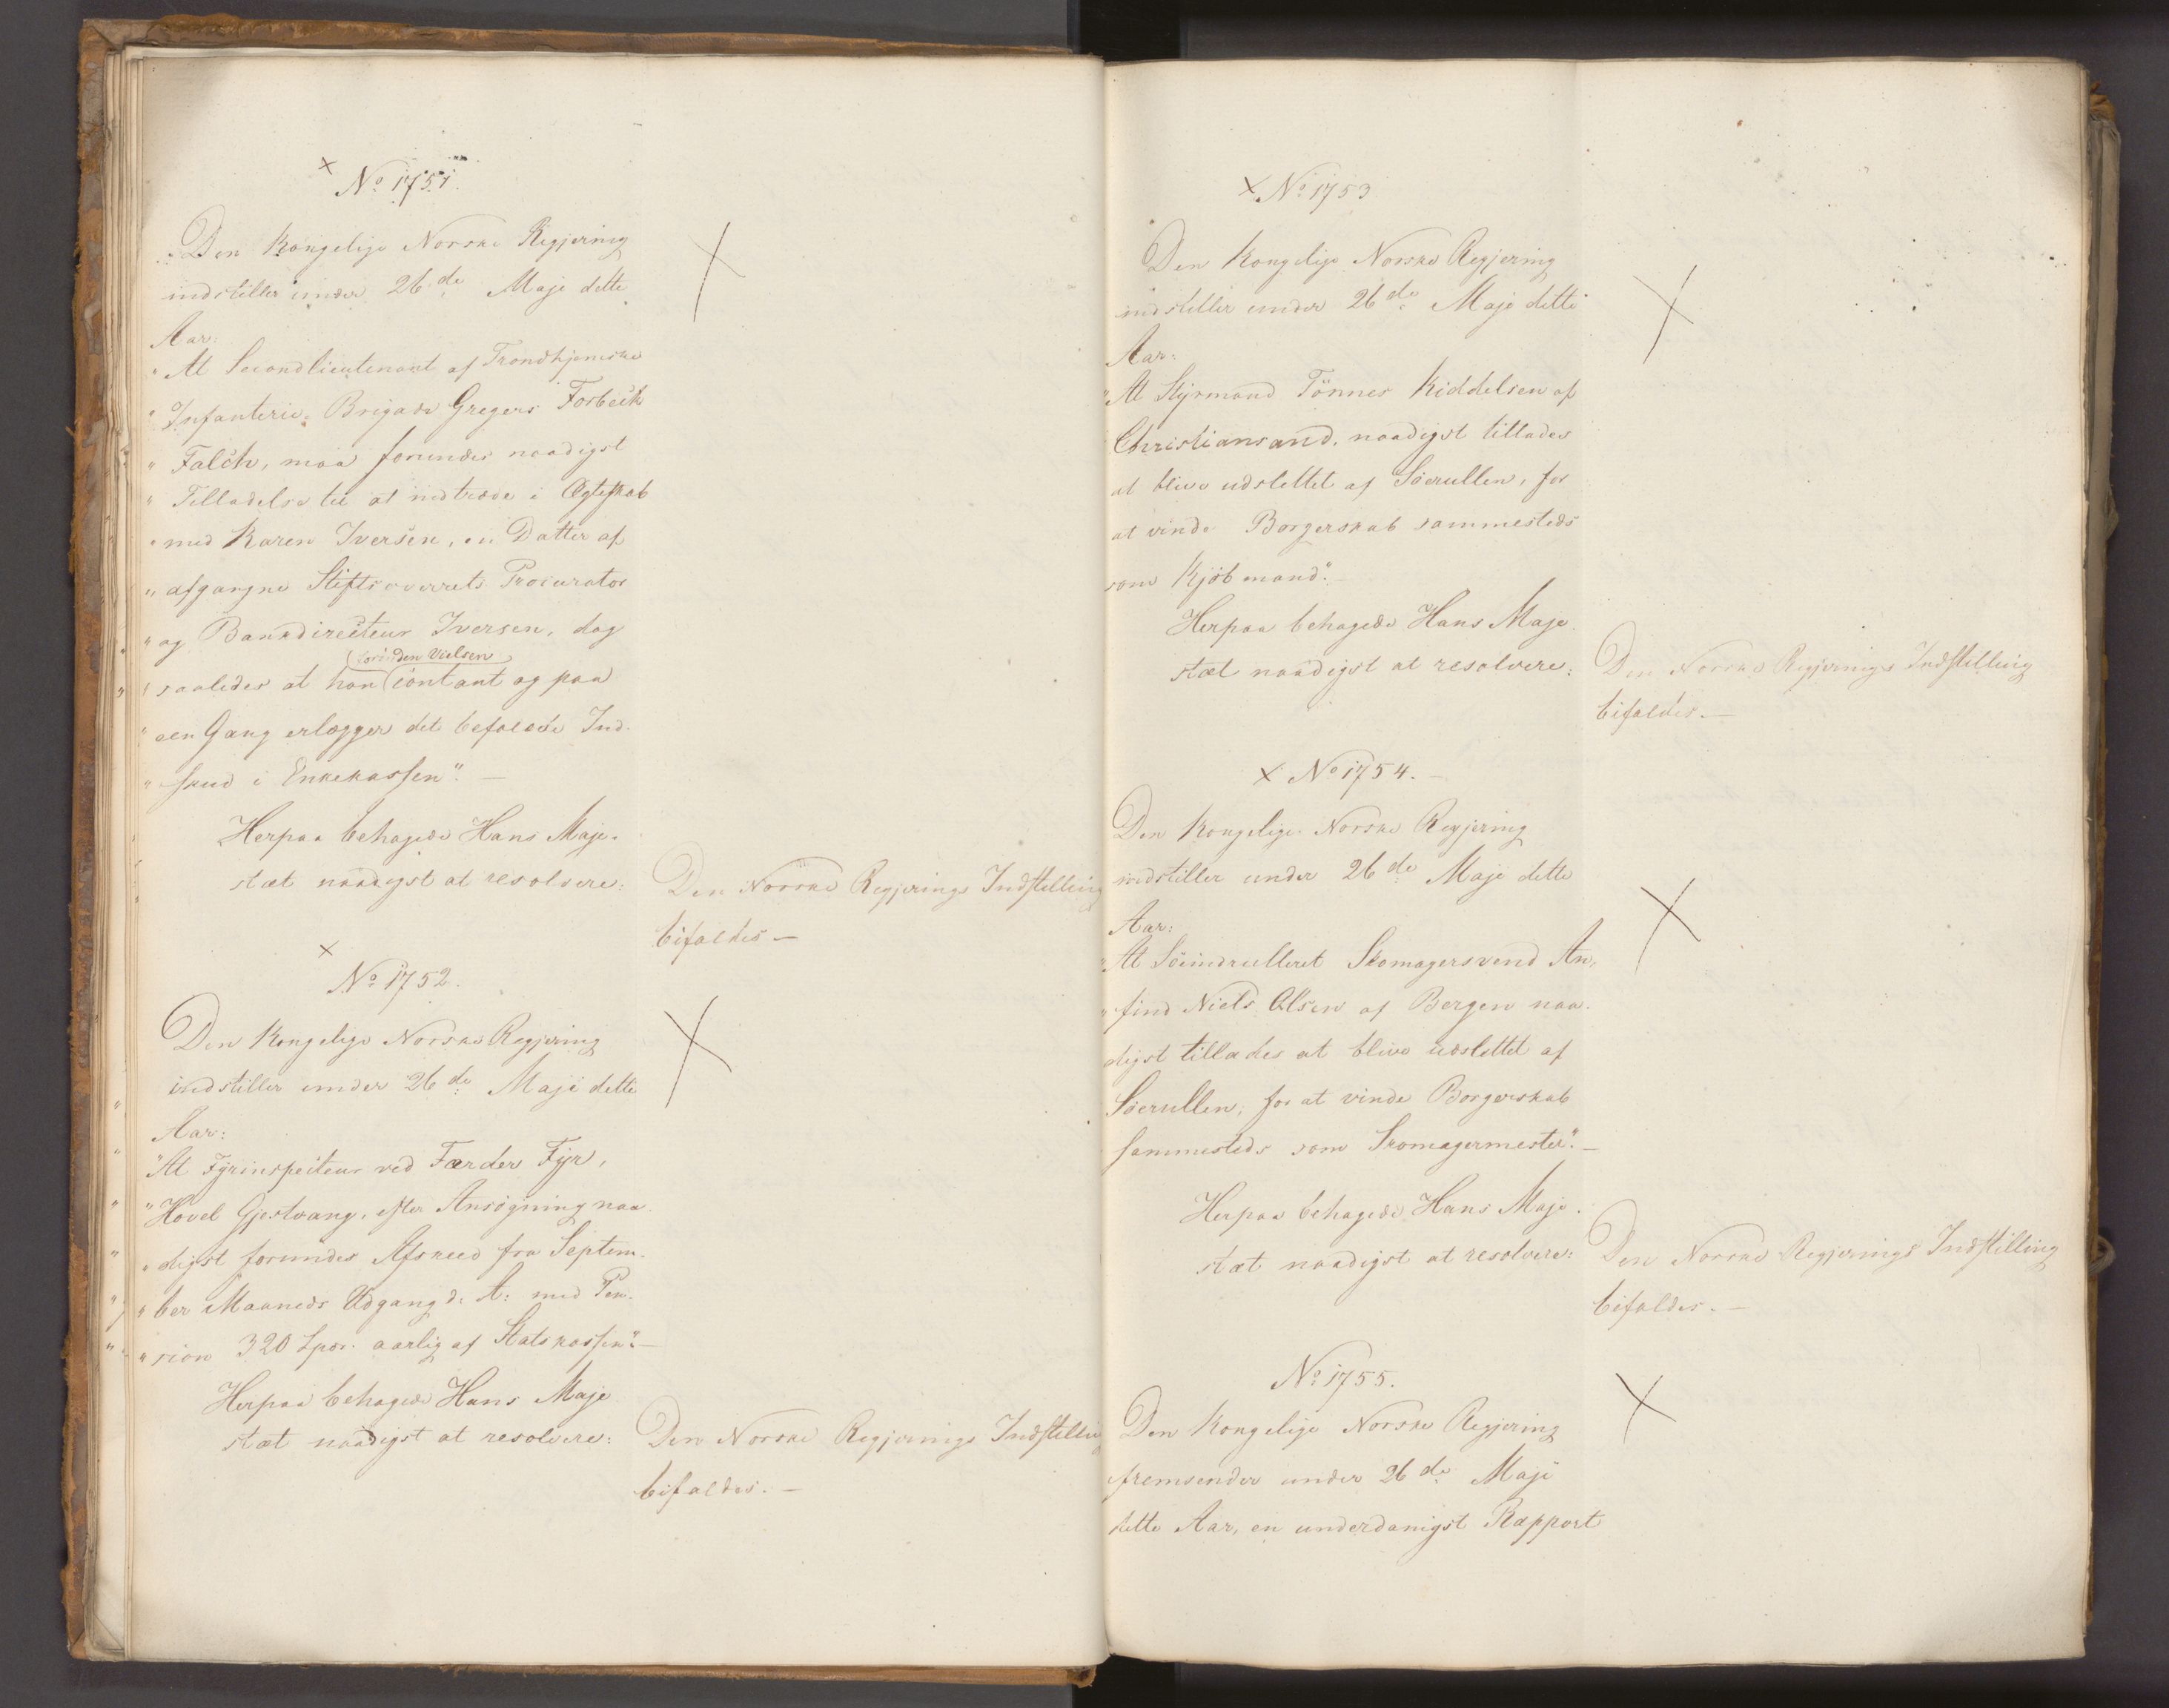 No 1751.
Den Kongelige Norske Regjering
indstiller under 26de Maji dette
Aar:
"At Secondlieutenant af Trondhjemske
"Infanterie-Brigade Gregers Forbech
"Falch, maa forundes naadigst
"Tilladelse til at indtræde i Ægteskab
"med Karen Iversen, en Datter af
"afgangne Stiftsoverrets Procurator
"og Bankdirecteur Iversen, dog
(forinden Vielsen)
"saaledes at han contant og paa
"een Gang erlægger det befalede Ind-
"skud i Enkekassen". —
Herpaa behagede Hans Maje-
stæt naadigst at resolvere:
Den Norske Regjerings Indstilling
bifaldes —
No 1752.
Den Kongelige Norske Regjering
indstiller under 26de Maji dette
Aar:
"At Fyrinspecteur ved Færder Fyr,
"Hovel Gjestvang, efter Ansøgning naa-
"digst forundes Afskeed fra Septem-
"ber Maaneds Udgang d: A: med Pen-
"sion 320 Spd. aarlig af Statskassen". —
Herpaa behagede Hans Maje
stæt naadigst at resolvere:
Den Norske Regjerings Indstilling
bifaldes. —
No 1753
Den Kongelige Norske Regjering
indstiller under 26de Maji dette
Aar:
"At Styrmand Tönnes Kiddelsen af
Christiansand, naadigst tillades
at blive udslettet af Söerullen, for
at vinde Borgerskab sammesteds
som Kjöbmand". —
Herpaa behagede Hans Maje-
stæt naadigst at resolvere:
Den Norske Regjerings Indstilling
bifaldes. —
No 1754. —
Den Kongelige Norske Regjering
indstiller under 26de Maji dette
Aar:
"At Söeindrulleret Skomagersvend An-
"find Niels Olsen af Bergen naa-
digst tillades at blive udslettet af
Söerullen, for at vinde Borgerskab
sammesteds som Skomagermester". —
Herpaa behagede Hans Maje-
stæt naadigst at resolvere:
Den Norske Regjerings Indstilling
bifaldes. —
No 1755.
Den Kongelige Norske Regjering
fremsender under 26de Maji
dette Aar, en underdanigst Rapport